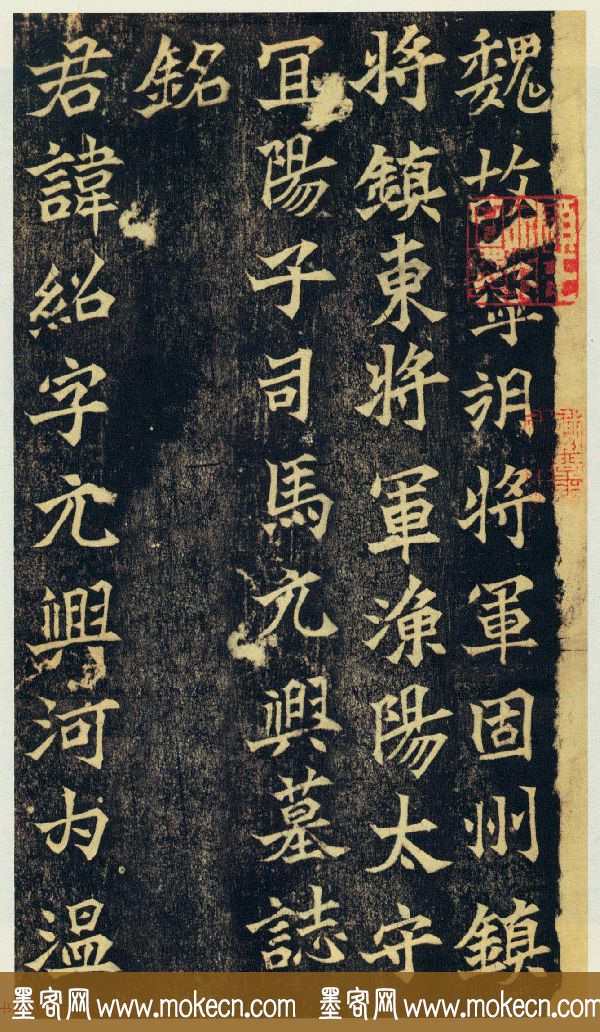 魏故寧朔將軍固州鎮
將鎮東將軍漁陽太守
宜陽子司馬元興墓誌
銘
君諱紹字元興河内溫
墨客网 www.mokecn.com 墨客网 www.mokecn.com